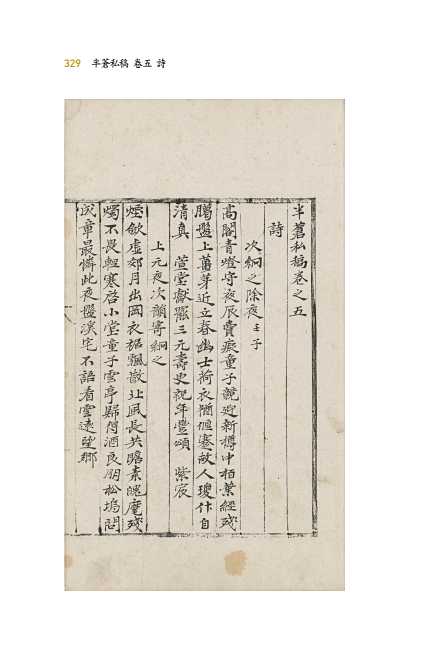 329 半蒼私稿 卷五 詩
半蒼私稿卷之五
詩
次絅之除夜壬子
高閣青燈守夜辰賣癡童子競迎新樽中栢葉經殘
臘盤上蔥芽近立春幽士荷衣簡偃蹇故人瓊什自
清真 萱堂獻罷三元壽史祝年豐頌 紫宸
上元夜次韻寄絅之
烟歛虛郊月出岡衣裾飄歗北風長共瞻素魄庭殘
燭不畏輕寒啓小堂童子雪亭歸得酒良朋松塢問
成章最憐此夜盤溪宅不語看雲遠望鄉